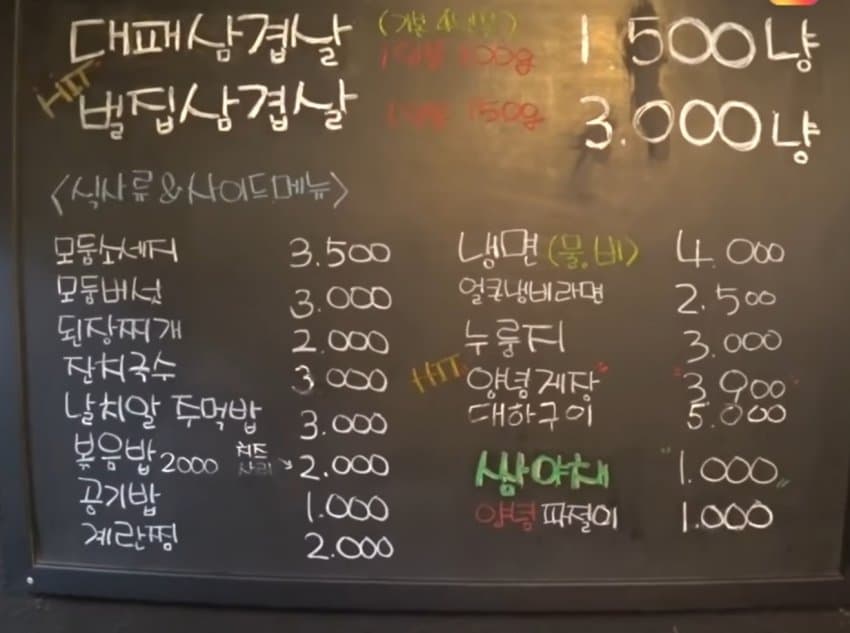 대패삼겹살 (기본 4인분) 1인분 100g 1.500냥
HIT 벌집삼겹살 1인분 150g 3.000냥
<식사류 & 사이드메뉴>
모둠소세지 3.500
모둠버섯 3.000
된장찌개 2.000
잔치국수 3.000
날치알 주먹밥 3.000
볶음밥 2000 치즈사리 → 2.000
공기밥 1.000
계란찜 2.000
냉면 (물.비) 4.000
얼큰냄비라면 2.500
누룽지 3.000
HIT 양녕게장 "3.900"
대하구이 5.000
쌈야채 "1.000"
양녕파절이 1.000